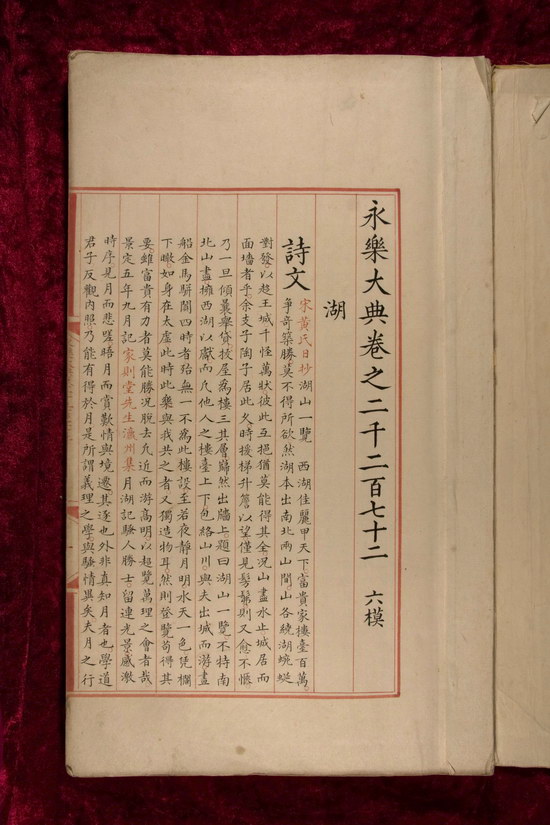 永樂大典卷之二千二百七十二 六模
湖
詩文
宋黃氏日抄湖山一覽 西湖佳麗甲天下富貴家樓臺百萬
爭奇築勝莫不得所欲然湖本出南北兩山間山各繞湖蜿蜒
對發以趍王城千怪萬狀彼此互挹猶莫能得其全況山盡水止城居而
面墻者乎余友子陶子居此久時援梯升簷以望僅見髣髴則又愈不愜
乃一旦傾囊舉貸拔屋為樓三其層巋然出牆上題曰湖山一覽不特南
北山盡擁西湖以獻而凡他人之樓臺上下包絡山川與夫出城而游畫
船金馬駢闐四時者殆無一不為此樓設至若夜靜月明水天一色凭欄
下瞰如身在太虛此時此樂與我共之者又獨造物耳然則登覽苟得其
要雖富貴有力者莫能勝況脫去凡近而游高明以超覽萬理之會者哉
景定五年九月記家則堂先生瀛州集月湖記騷人勝士留連光景感激
時序見月而悲嗟睹月而賞歎情與境遷其逐也外非真知月者也學道
君子反觀內照乃能有得於月是所謂義理之學與騷情異矣夫月之行